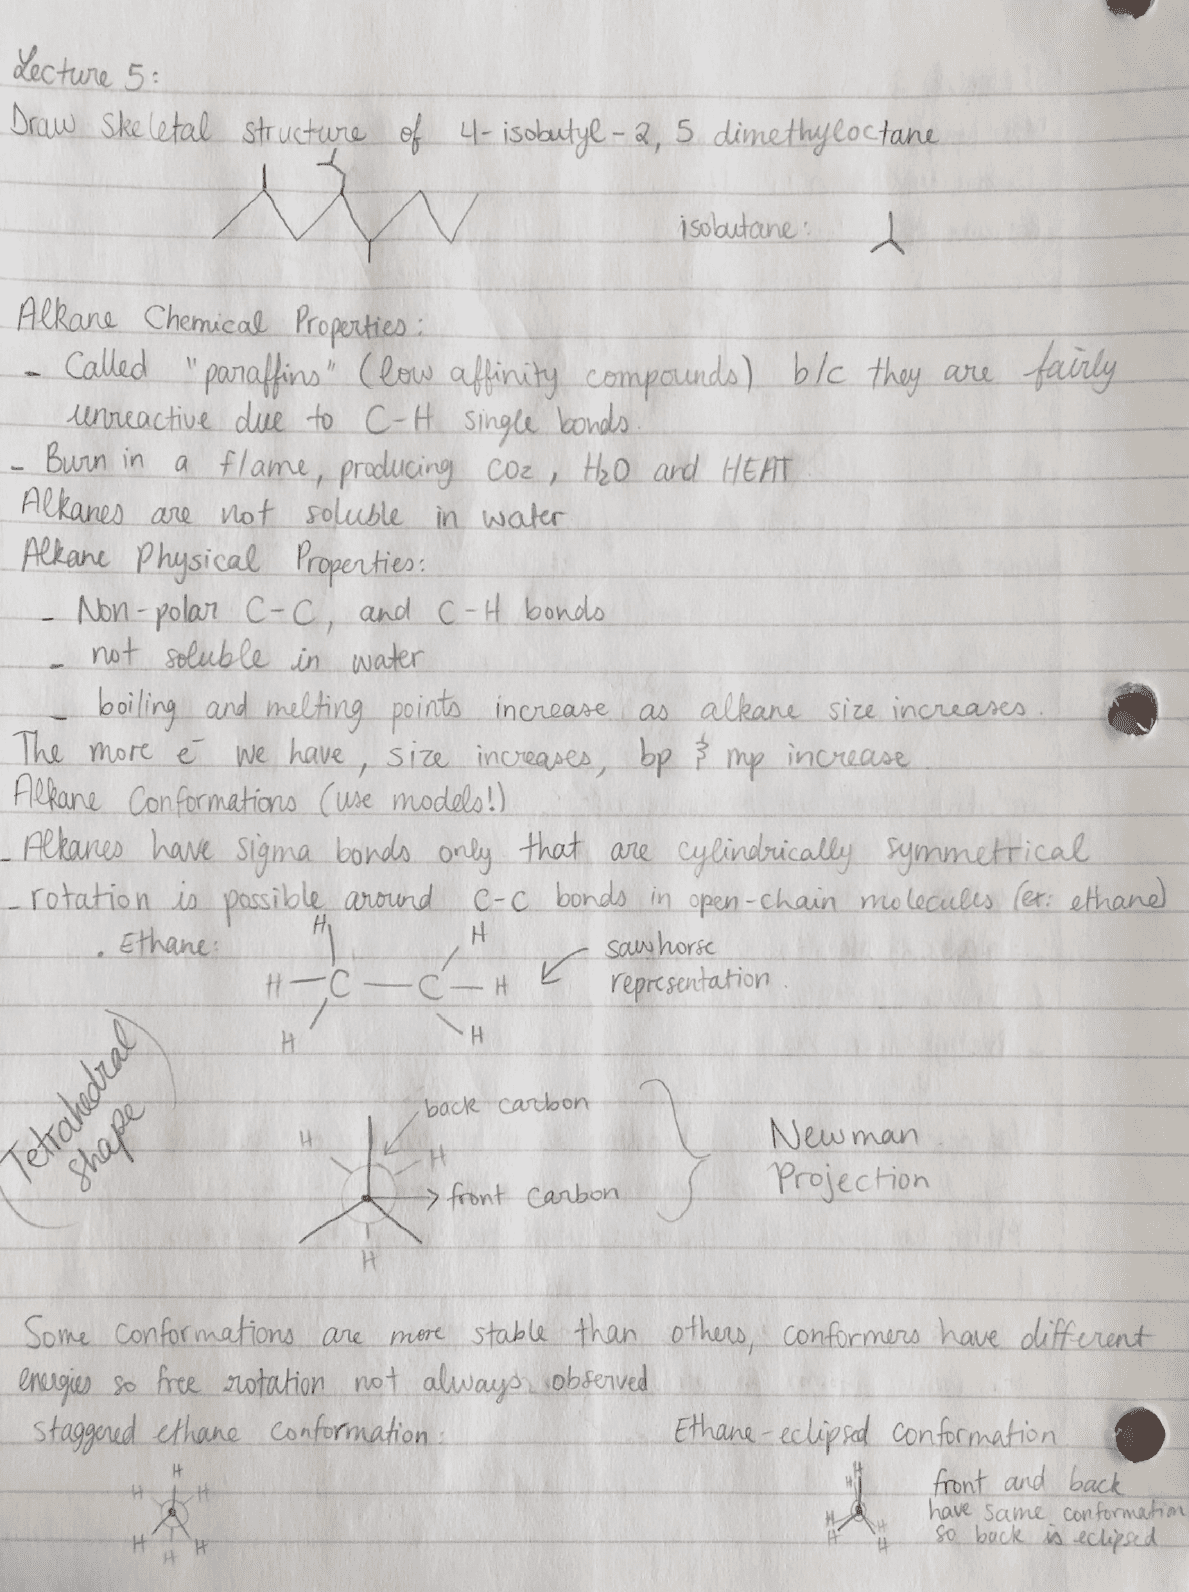 Lecture 5:
Draw skeletal structure of 4-isobutyl-2, 5 dimethyloctane
isobutane:
Alkane Chemical Properties:
- Called "paraffins" (low affinity compounds) b/c they are fairly
unreactive due to C-H single bonds.
- Burn in a flame, producing CO2, H2O and HEAT.
Alkanes are not soluble in water
Alkane Physical Properties:
- Non-polar C-C, and C-H bonds
- not soluble in water
- boiling and melting points increase as alkane size increases.
The more e⁻ we have, size increases, bp & mp increase.
Alkane Conformations (use models!)
- Alkanes have sigma bonds only that are cylindrically symmetrical
- rotation is possible around C-C bonds in open-chain molecules (ex: ethane)
. Ethane:
H H
H-C-C-H
H H
sawhorse
representation.
Tetrahedral
shape
back carbon
H H
front carbon
H
Newman
Projection
Some conformations are more stable than others, conformers have different
energies so free rotation not always observed
staggered ethane conformation:
H
H H
H H
H
Ethane-eclipsed conformation
H
H
H
H
H
H
front and back
have same conformation
so back is eclipsed